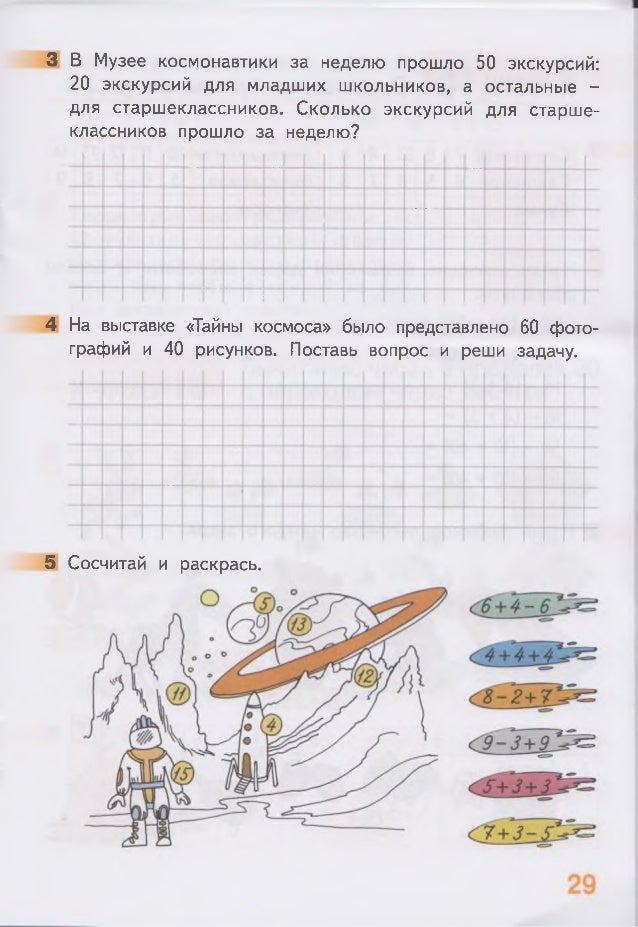 3 В Музее космонавтики за неделю прошло 50 экскурсий:
20 экскурсий для младших школьников, а остальные –
для старшеклассников. Сколько экскурсий для старше-
классников прошло за неделю?
4 На выставке «Тайны космоса» было представлено 60 фото-
графий и 40 рисунков. Поставь вопрос и реши задачу.
5 Сосчитай и раскрась.
5
13
11
12
4
15
6+4-6
4+4+4
8-2+7
9-3+9
5+3+3
7+3-5
29